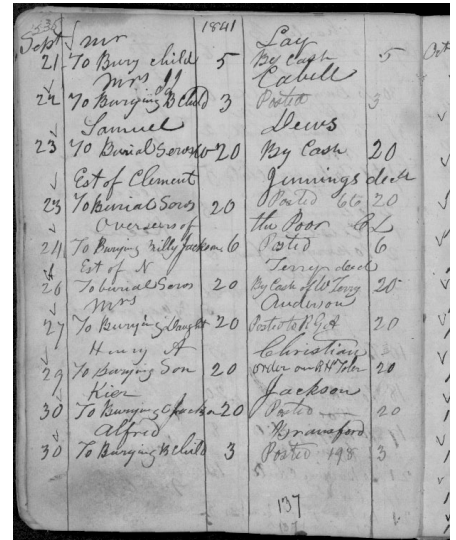 1841
Sept mr Lay
21 To Bury child 5 By Cash 5 Oct
mrs Cabell
22 To Burying B Child 3 Posted 3
Samuel Dews
23 To Burial Servs 20 By Cash 20
Est of Clement Jennings decd
23 To Burial Servs 20 Posted 66 20
Overseers of the Poor C L
24 To Burying Jackson 6 Posted 6
Est of N Terry decd
26 To burial Servs 20 By Cash of W Terry 20
mrs Anderson
27 To Burying Daught 20 Posted to R G A 20
Henry A Christian
29 To Burying Son 20 order on 20
Kier Jackson
30 To Burying 20 Posted 20
Alfred Bransford
30 To Burying B Child 3 Posted 198 3
137